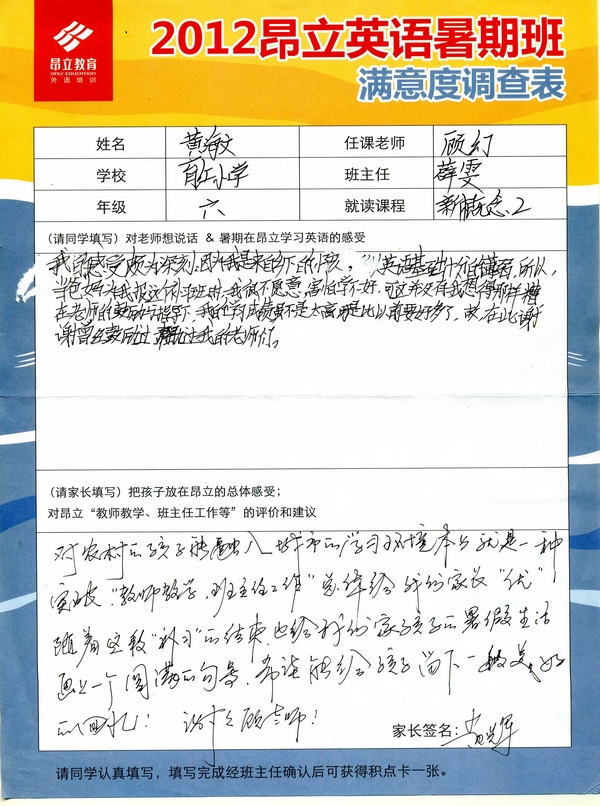 昂立教育
ONLY EDUCATION
外语培训
2012昂立英语暑期班
满意度调查表
姓名 黄海文 任课老师 顾幻
学校 育红小学 班主任 薛雯
年级 六 就读课程 新概念.2
(请同学填写) 对老师想说话 & 暑期在昂立学习英语的感受
我的感受颇为深刻,因为我是来自乡下的小孩,所以英语基础什么的懂得,所以,
当爸妈为我报这个补习班时,我很不愿意,害怕学不好,可这并没有我想得那样糟
在老师的鼓励与指导下,我的学习成绩虽不是太高,可是比以前要好多了,故,在此谢
谢曾经鼓励过 我的老师们。
(请家长填写) 把孩子放在昂立的总体感受;
对昂立“教师教学、班主任工作等”的评价和建议
对农村的孩子能融入城市的学习环境本身就是一种
突破,“教师教学,班主任工作”总体给我们家长“优”!
随着这教“补习”的结束,也给我们家孩子的暑假生活
画上一个圆满的句号,希望能给孩子留下一段美好
的回忆! 谢谢顾老师!
家长签名:
请同学认真填写,填写完成经班主任确认后可获得积点卡一张。